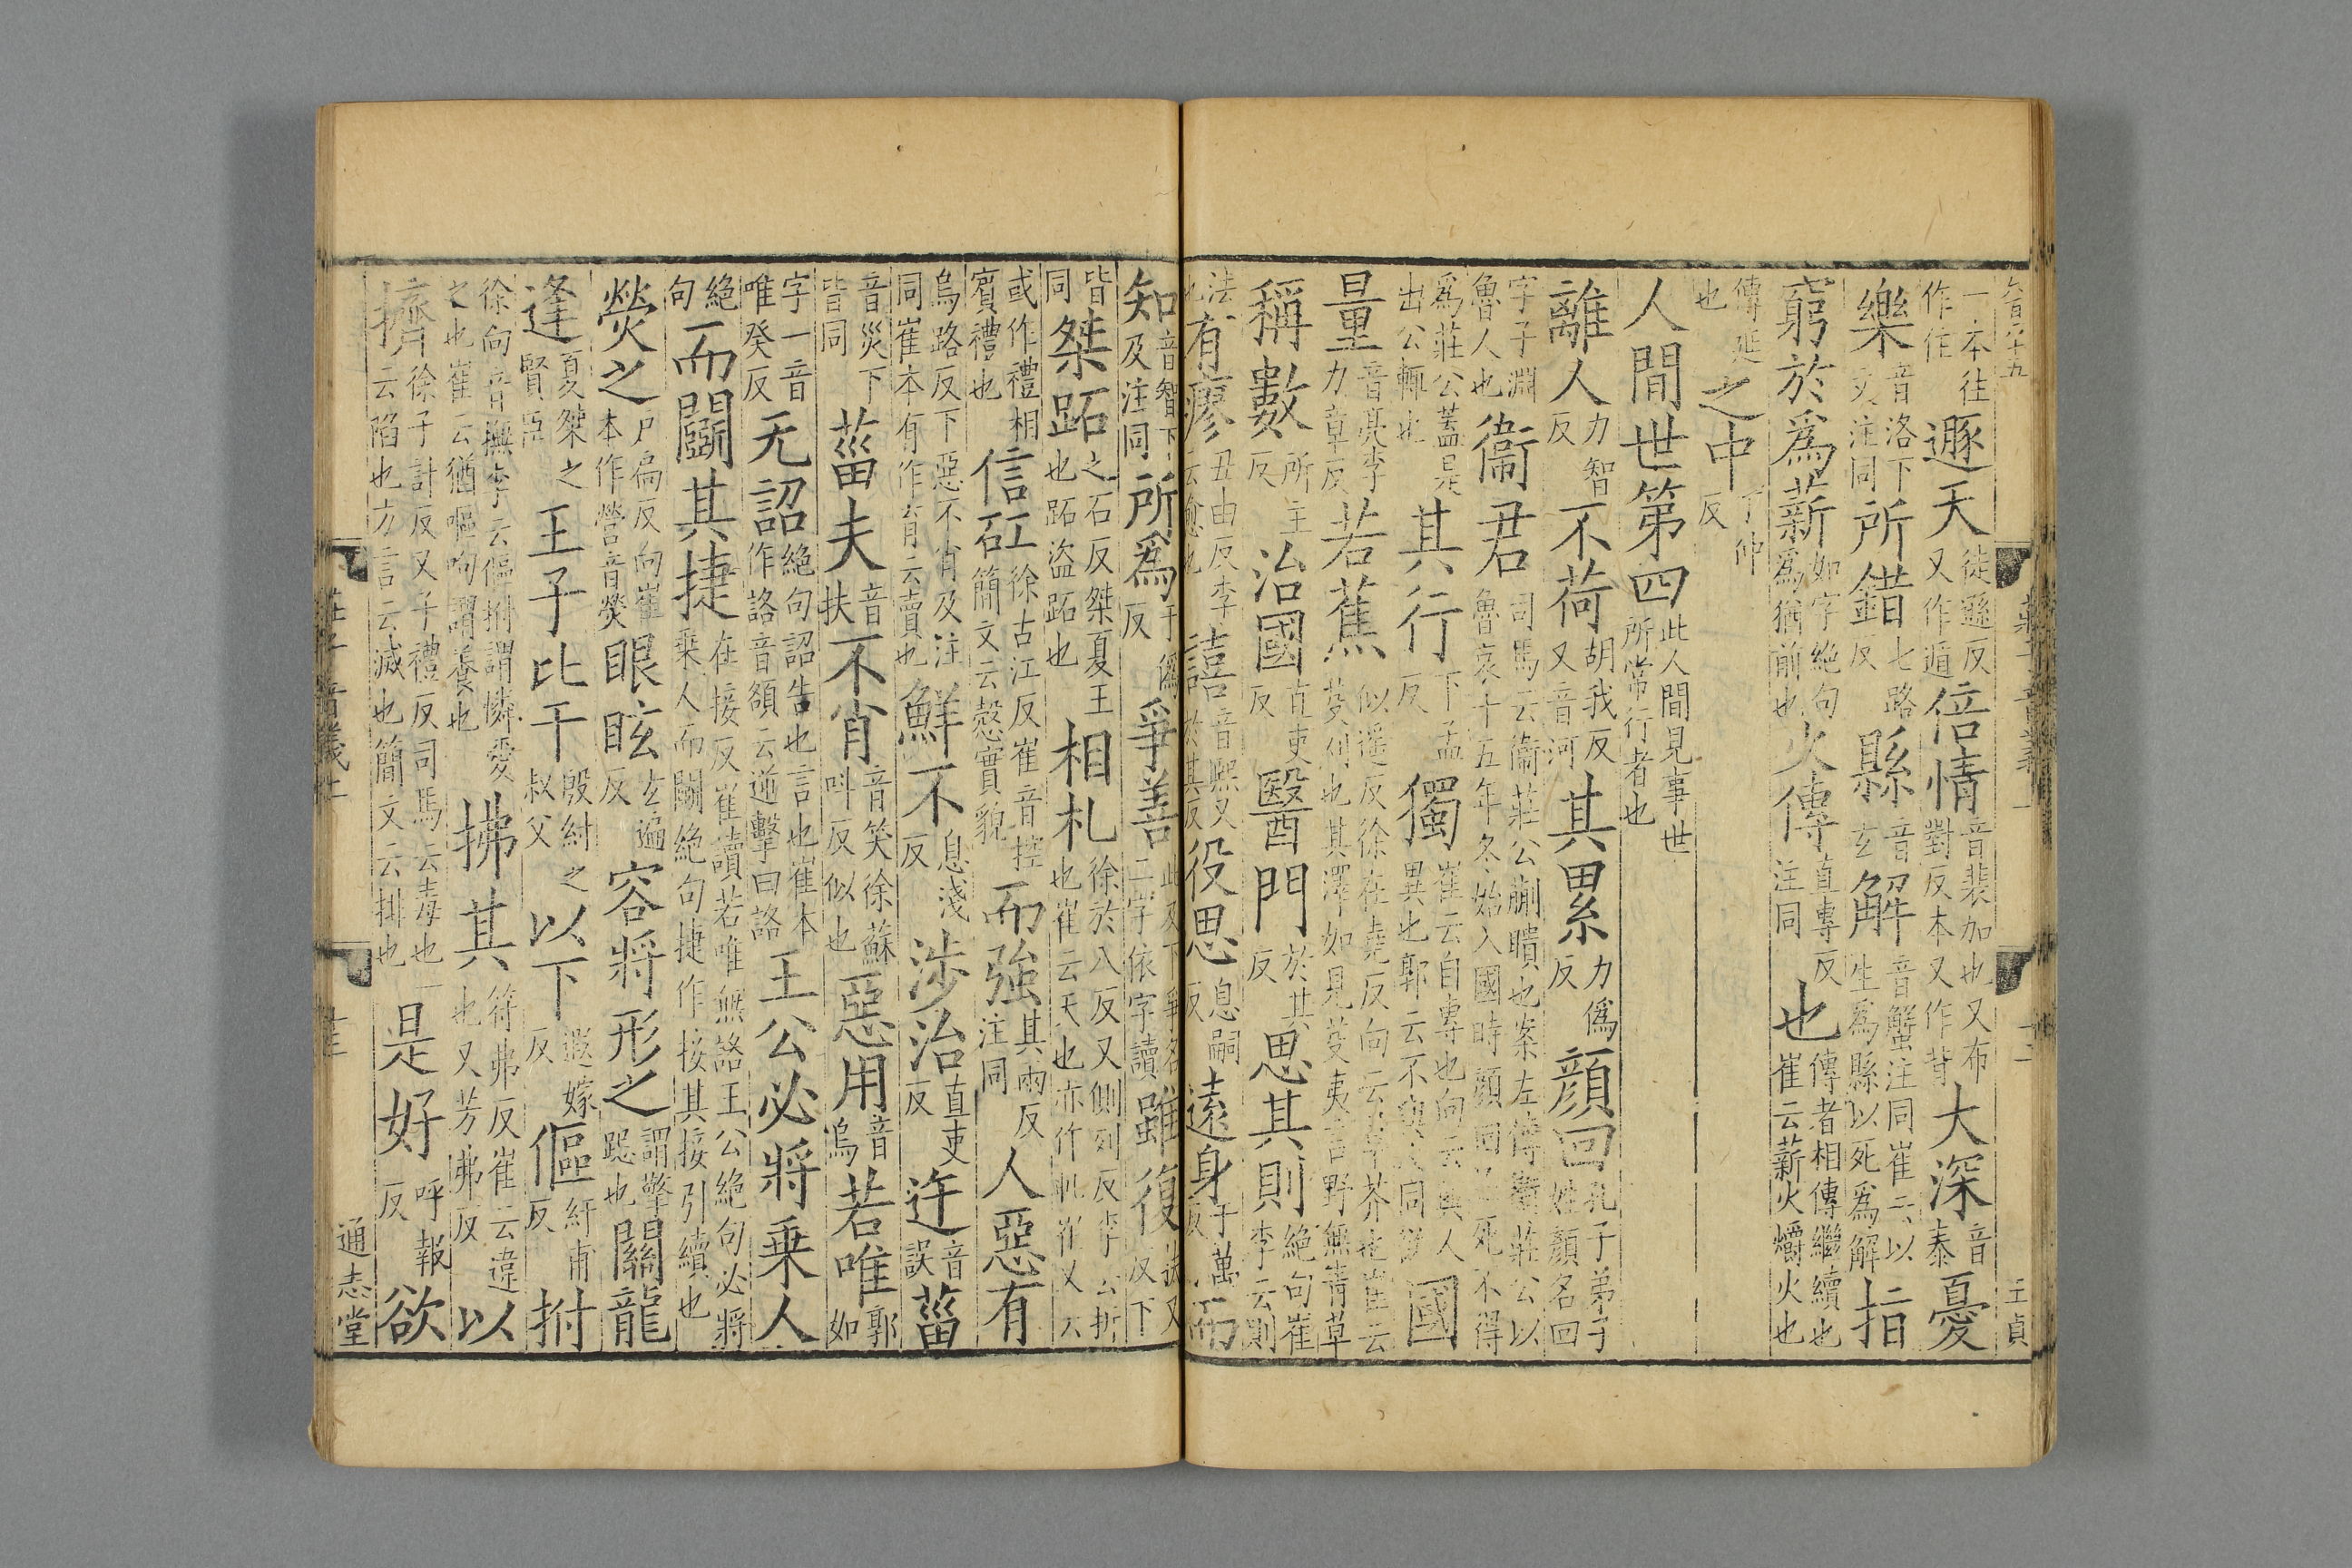 一本往作住遯天徒遜反又作遁倍情音裴加也又布對反本又作背大深音泰憂
樂音洛下文注同所錯七路反縣音玄解音蟹注同崔云以生爲縣以死爲解指
窮於爲薪如字絕句爲猶前也火傳直專反注同也傳者相傳繼續也崔云薪火爝火也
傳延也之中丁仲反
人間世第四此人間見事世所常行者也
離人力智反不荷胡我反又音河其累力僞反顏回孔子弟子姓顏名回
字子淵魯人也衞君司馬云衞莊公蒯聵也案左傳衞莊公以魯哀十五年冬始入國時顏回已死不得
爲莊公蓋是出公輒也其行下孟反獨崔云自專也向云與人異也郭云不與人同欲國
量音亮李力章反若蕉似遥反徐在堯反向云草芥也崔云芟刈也其澤如見芟夷言野無青草
稱數所主反治國直吏反醫門於其反思其則絕句崔李云則
法也有瘳丑由反李云愈也譆音熙又於其反役思息嗣反遠身于萬反而
知音智下及注同所爲于僞反爭善此及下爭名二字依字讀雖復扶又反下
皆同桀跖之石反桀夏王也跖盜跖也相札徐於八反又側列反李云折也崔云夭也亦作軋崔又云
或作禮相賓禮也信矼徐古江反崔音控簡文云慤實貌而強其兩反注同人惡有
烏路反下惡不肖及注同崔本有作育云賣也鮮不息淺反渉治直吏反迕音誤菑
音災下皆同菑夫音扶不肖音笑徐蘇叫反似也惡用音烏若唯郭如
字一音唯癸反无詔絕句詔告也言也崔本作詻音頟云逆擊曰詻王公必將乗人
絕句而鬭其捷在接反崔讀若唯無詻王公絕句必將乗人而鬭絕句捷作接其接引續也
熒之戸扃反向崔本作營音熒眼眩玄遍反容將形之謂擎跽也關龍
逢夏桀之賢臣王子比干殷紂之叔父以下遐嫁反傴紆甫反拊
徐向音撫李云傴拊謂憐愛之也崔云猶嘔呴謂養也拂其符弗反崔云違也又芳弗反以
擠徐子計反又子禮反司馬云毒也一云陷也方言云滅也簡文云排也是好呼報反欲
通志堂